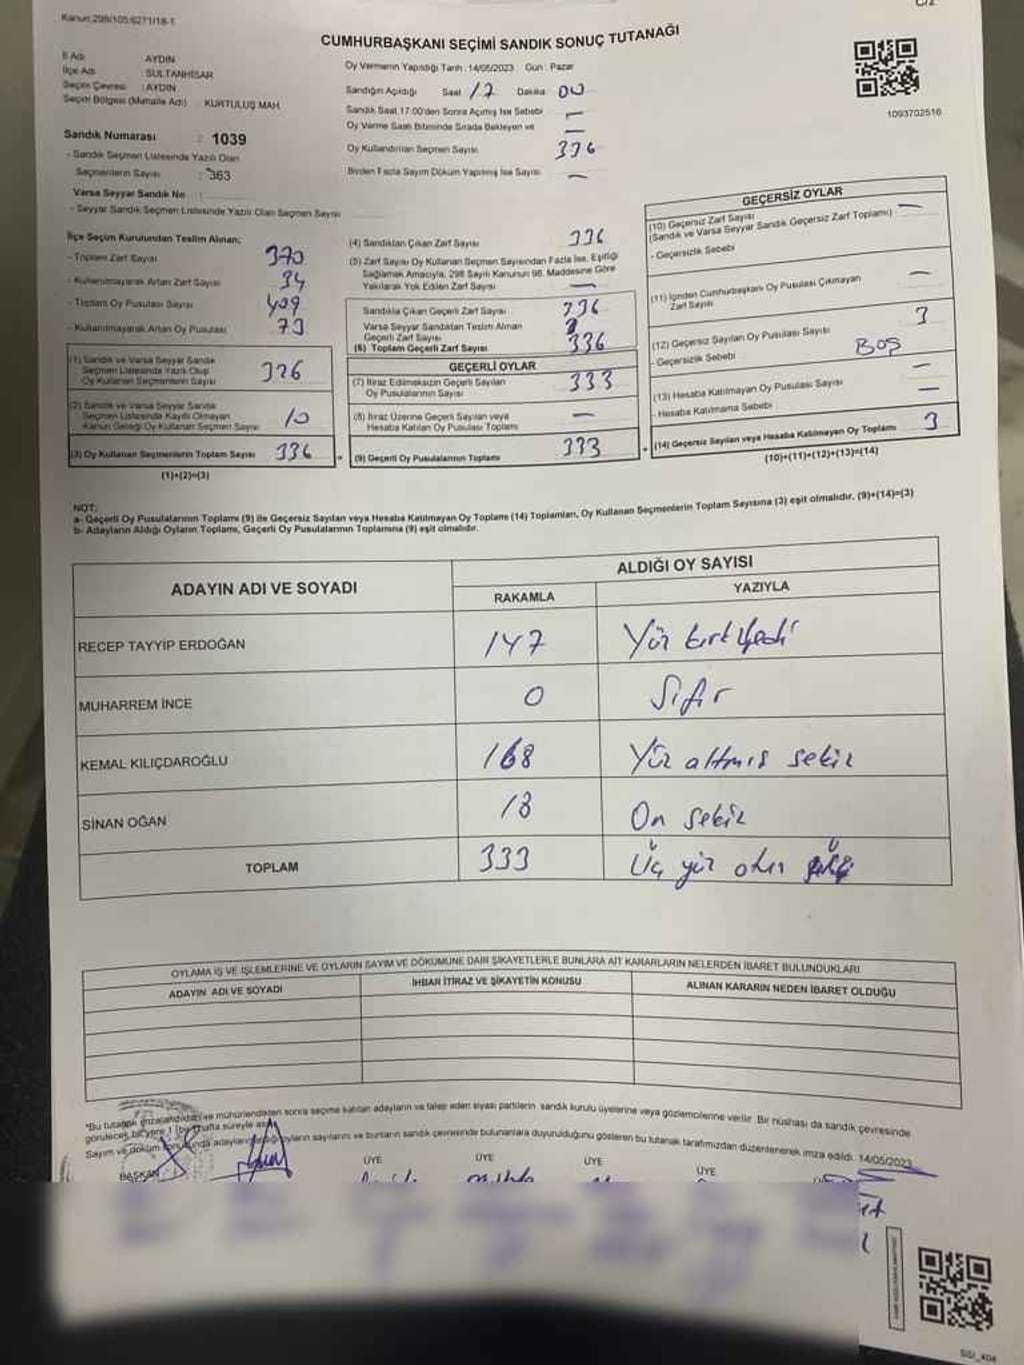 Kanun:298/105;6271/18-1
C/2
CUMHURBAŞKANI SEÇİMİ SANDIK SONUÇ TUTANAĞI
İl Adı : AYDIN
İlçe Adı : SULTANHİSAR
Seçim Çevresi : AYDIN
Seçim Bölgesi (Mahalle Adı) : KURTULUŞ MAH.
Sandık Numarası : 1039
- Sandık Seçmen Listesinde Yazılı Olan
Seçmenlerin Sayısı : 363
Varsa Seyyar Sandık No :
- Seyyar Sandık Seçmen Listesinde Yazılı Olan Seçmen Sayısı
Oy Vermenin Yapıldığı Tarih : 14/05/2023 Gün : Pazar
Sandığın Açıldığı Saat 17 Dakika 00
Sandık Saat 17:00'den Sonra Açılmış İse Sebebi —
Oy Verme Saati Bitiminde Sırada Bekleyen ve —
Oy Kullandırılan Seçmen Sayısı 336
Birden Fazla Sayım Döküm Yapılmış İse Sayısı —
1093702516
İlçe Seçim Kurulundan Teslim Alınan;
- Toplam Zarf Sayısı 370
- Kullanılmayarak Artan Zarf Sayısı 34
- Toplam Oy Pusulası Sayısı 409
- Kullanılmayarak Artan Oy Pusulası 73
(1) Sandık ve Varsa Seyyar Sandık
Seçmen Listesinde Yazılı Olup
Oy Kullanan Seçmenlerin Sayısı 326
(2) Sandık ve Varsa Seyyar Sandık
Seçmen Listesinde Kayıtlı Olmayan
Kanun Gereği Oy Kullanan Seçmen Sayısı 10
(3) Oy Kullanan Seçmenlerin Toplam Sayısı 336
(1)+(2)=(3)
(4) Sandıktan Çıkan Zarf Sayısı 336
(5) Zarf Sayısı Oy Kullanan Seçmen Sayısından Fazla İse, Eşitliği
Sağlamak Amacıyla, 298 Sayılı Kanunun 98. Maddesine Göre
Yakılarak Yok Edilen Zarf Sayısı —
Sandıkta Çıkan Geçerli Zarf Sayısı 336
Varsa Seyyar Sandıktan Teslim Alınan
Geçerli Zarf Sayısı
(6) Toplam Geçerli Zarf Sayısı 336
GEÇERLİ OYLAR
(7) İtiraz Edilmeksizin Geçerli Sayılan
Oy Pusulalarının Sayısı 333
(8) İtiraz Üzerine Geçerli Sayılan veya
Hesaba Katılan Oy Pusulası Toplamı —
(9) Geçerli Oy Pusulalarının Toplamı 333
GEÇERSİZ OYLAR
(10) Geçersiz Zarf Sayısı —
(Sandık ve Varsa Seyyar Sandık Geçersiz Zarf Toplamı)
- Geçersizlik Sebebi
(11) İçinden Cumhurbaşkanı Oy Pusulası Çıkmayan
Zarf Sayısı —
(12) Geçersiz Sayılan Oy Pusulası Sayısı 3
- Geçersizlik Sebebi BOŞ
(13) Hesaba Katılmayan Oy Pusulası Sayısı —
- Hesaba Katılmama Sebebi —
(14) Geçersiz Sayılan veya Hesaba Katılmayan Oy Toplamı 3
(10)+(11)+(12)+(13)=(14)
NOT:
a- Geçerli Oy Pusulalarının Toplamı (9) ile Geçersiz Sayılan veya Hesaba Katılmayan Oy Toplamı (14) Toplamları, Oy Kullanan Seçmenlerin Toplam Sayısına (3) eşit olmalıdır. (9)+(14)=(3)
b- Adayların Aldığı Oyların Toplamı, Geçerli Oy Pusulalarının Toplamına (9) eşit olmalıdır.
ADAYIN ADI VE SOYADI
ALDIĞI OY SAYISI
RAKAMLA YAZIYLA
RECEP TAYYİP ERDOĞAN 147 Yüz kırk yedi
MUHARREM İNCE 0 Sıfır
KEMAL KILIÇDAROĞLU 168 Yüz altmış sekiz
SİNAN OĞAN 18 On sekiz
TOPLAM 333 Üç yüz otuz üç
OYLAMA İŞ VE İŞLEMLERİNE VE OYLARIN SAYIM VE DÖKÜMÜNE DAİR ŞİKAYETLERLE BUNLARA AİT KARARLARIN NELERDEN İBARET BULUNDUKLARI
ADAYIN ADI VE SOYADI
İHBAR İTİRAZ VE ŞİKAYETİN KONUSU
ALINAN KARARIN NEDEN İBARET OLDUĞU
*Bu tutanak imzalandıktan ve mühürlendikten sonra seçime katılan adayların ve talep eden siyasi partilerin sandık kurulu üyelerine veya gözlemcilerine verilir. Bir nüshası da sandık çevresinde
görülecek bir yere 1 (bir) hafta süreyle asılır.
Sayım ve döküm sonucunda adayların aldığı oyların sayılarını ve bunların sandık çevresinde bulunanlara duyurulduğunu gösteren bu tutanak tarafımızdan düzenlenerek imza edildi. 14/05/2023
BAŞKAN
ÜYE
ÜYE
ÜYE
ÜYE